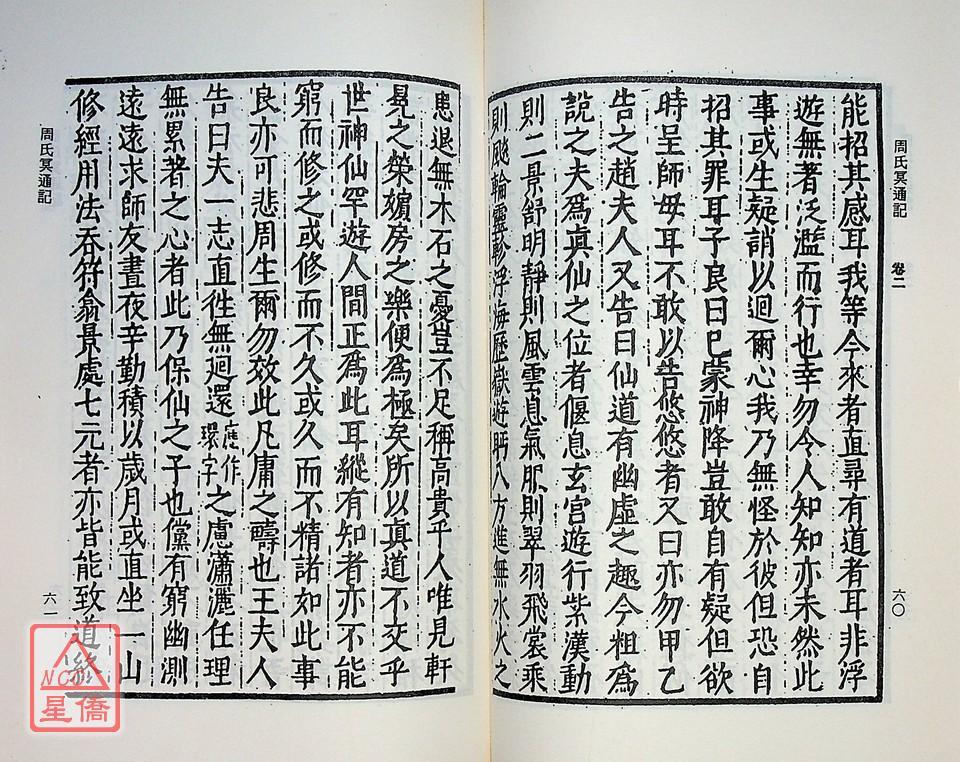 周氏冥通記 卷二 六〇
能招其感耳我等今來者直尋有道者耳非浮
遊無著泛濫而行也幸勿令人知知亦未然此
事或生疑誚以迴爾心我乃無怪於彼但恐自
招其罪耳子良曰巳蒙神降豈敢自有疑但欲
時呈師母耳不敢以告悠悠者又曰亦勿甲乙
告之趙夫人又告曰仙道有幽虛之趣今粗爲
說之夫爲真仙之位者偃息玄宮遊行紫漢動
則二景舒明靜則風雲息氣服則翠羽飛裳乘
則飈輪靈軫浮海歷嶽遊眄八方進無水火之
患退無木石之憂豈不足稱高貴乎人唯見軒
冕之榮嬪房之樂便爲極矣所以真道不交乎
世神仙罕遊人間正爲此耳縱有知者亦不能
窮而修之或修而不久或久而不精諸如此事
良亦可悲周生爾勿效此凡庸之疇也王夫人
告曰夫一志直往無迴還應作環字之慮瀟灑任理
無累著之心者此乃保仙之子也儻有窮幽測
遠遠求師友晝夜辛勤積以歲月或直坐一山
修經用法吞符翕景處七元者亦皆能致道終
周氏冥通記 六一
NCC
星僑